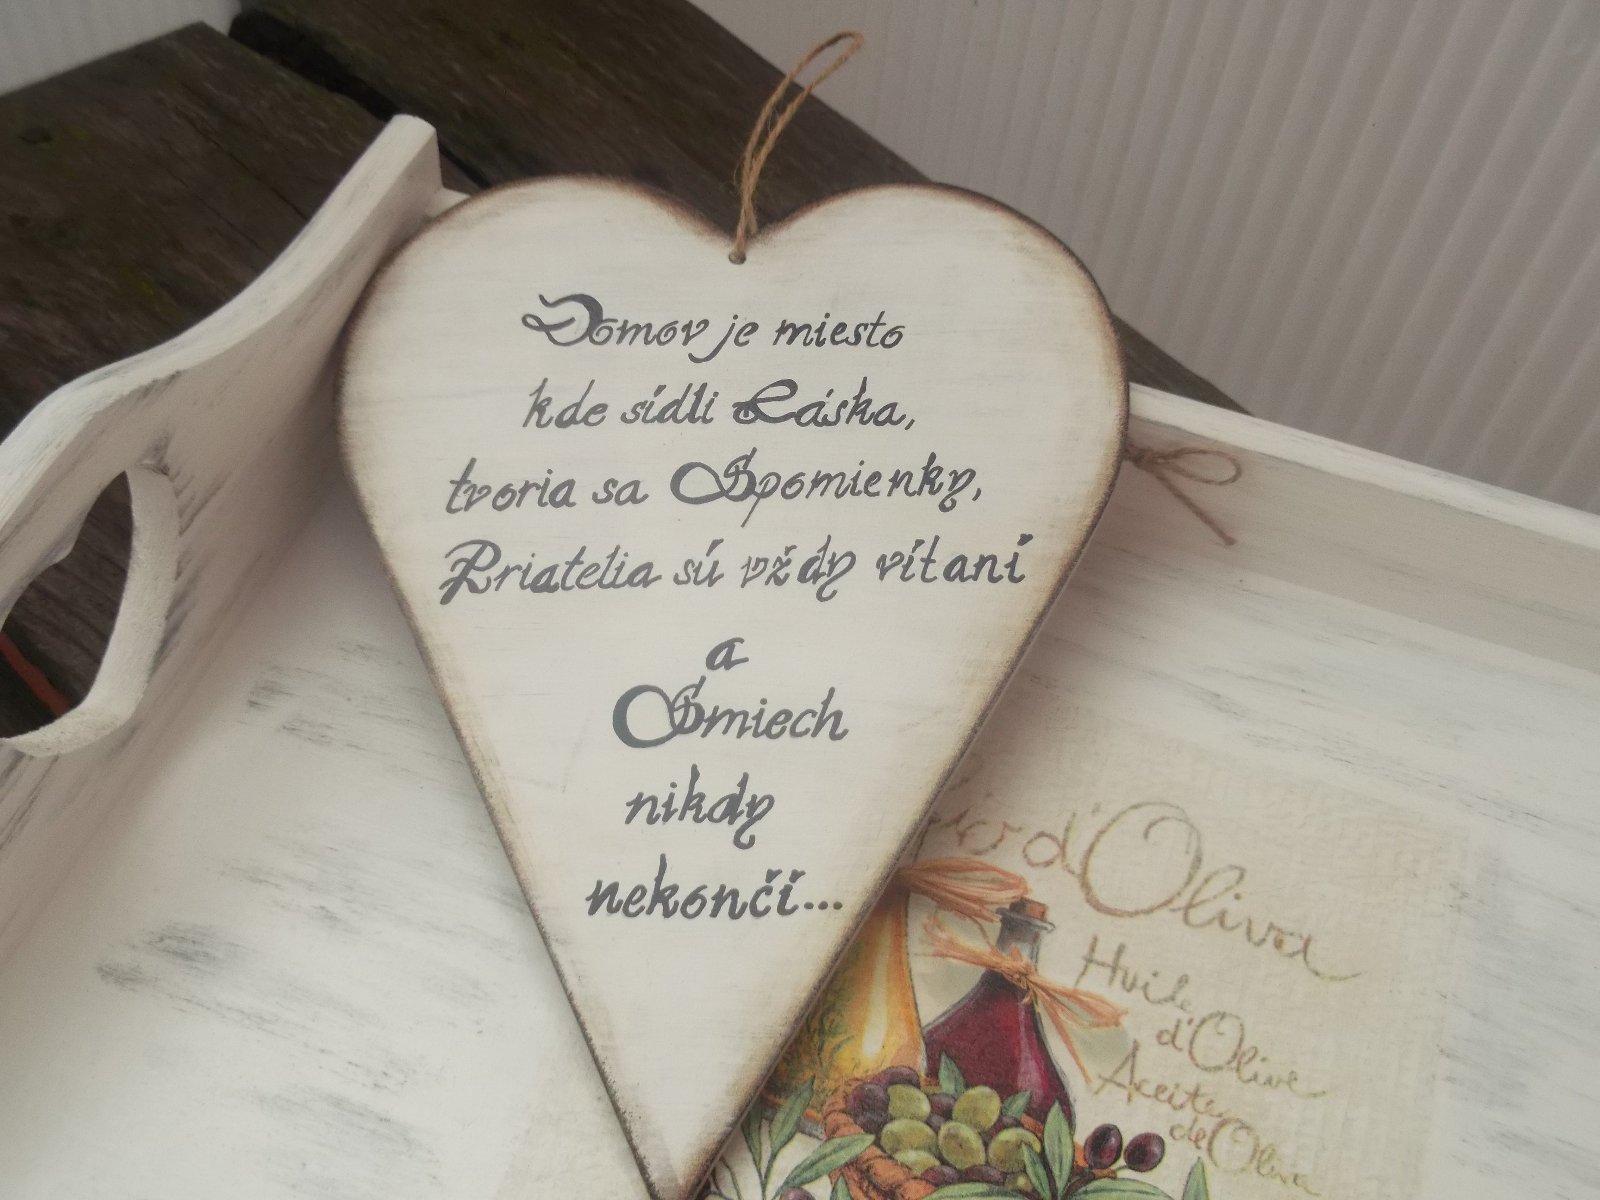 Domov je miesto
kde sídli Láska,
tvoria sa Spomienky,
Priatelia sú vždy vítaní
a
Smiech
nikdy
nekončí...
d'Oliva
Huile
d'Olive
Aceite
de Oliva